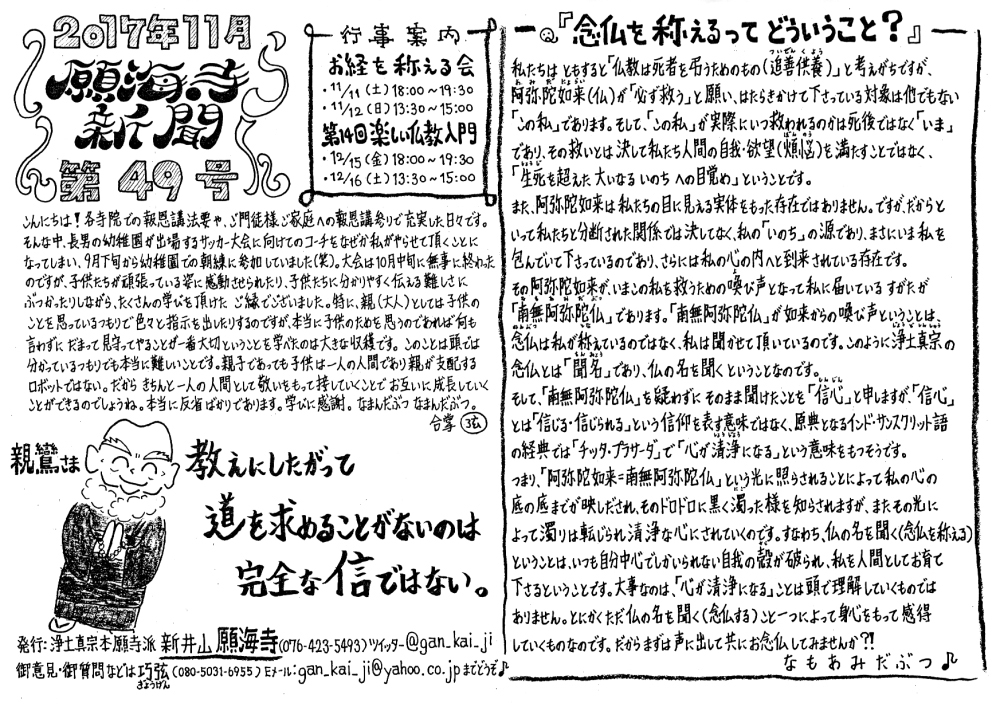 2017年11月
願海寺
新聞
第49号
行事案内
お経を称える会
・11/11(土)18:00～19:30
・11/12(日)13:30～15:00
第14回楽しい仏教入門
・12/15(金)18:00～19:30
・12/16(土)13:30～15:00
こんにちは！各寺院での報恩講法要や、ご門徒様ご家庭への報恩講参りで充実した日々です。
そんな中、長男の幼稚園が出場するサッカー大会に向けてのコーチをなぜか私がやらせて頂くことに
なってしまい、9月下旬から幼稚園での朝練に参加していました(笑)。大会は10月中旬に無事に終わった
のですが、子供たちが頑張っている姿に感動させられたり、子供たちに分かりやすく伝える難しさに
ぶつかったりしながら、たくさんの学びを頂けたご縁でございました。特に、親(大人)としては子供の
ことを思っているつもりで色々と指示を出したりするのですが、本当に子供のためを思うのであれば何も
言わずにだまって見守ってやることが一番大切ということを学べたのは大きな収穫です。このことは頭では
分かっているつもりでも本当に難しいことです。親子であっても子供は一人の人間であり親が支配する
ロボットではない。だからきちんと一人の人間として敬いをもって接していくことでお互いに成長していく
ことができるのでしょうね。本当に反省ばかりであります。学びに感謝。なまんだぶつなまんだぶつ。
合掌 弦
親鸞さま
教えにしたがって
道を求めることがないのは
完全な信ではない。
発行：浄土真宗本願寺派 新井山 願海寺(076-423-5493)ツイッター@gan_kai_ji
御意見・御質問などは巧弦(080-5031-6955)Eメール：gan_kai_ji@yahoo.co.jpまでどうぞ♪
ぎょうげん
『念仏を称えるってどういうこと？』
ついぜんくよう
私たちはともすると「仏教は死者を弔うためのもの(追善供養)」と考えがちですが、
あみだにょらい
阿弥陀如来(仏)が「必ず救う」と願い、はたらきかけて下さっている対象は他でもない
「この私」であります。そして、「この私」が実際にいつ救われるのかは死後ではなく「いま」
ぼんのう
であり、その救いとは決して私たち人間の自我・欲望(煩悩)を満たすことではなく、
しょうじ
「生死を超えた大いなるいのちへの目覚め」ということです。
また、阿弥陀如来は私たちの目に見える実体をもった存在ではありません。ですが、だからと
いって私たちと分断された関係では決してなく、私の「いのち」の源であり、まさにいま私を
包んでいて下さっているのであり、さらには私の心の内へと到来されている存在です。
その阿弥陀如来が、いまこの私を救うための喚び声となって私に届いているすがたが
なもあみだぶつ
「南無阿弥陀仏」であります。「南無阿弥陀仏」が如来からの喚び声ということは、
念仏は私が称えているのではなく、私は聞かせて頂いているのです。このように浄土真宗の
もんみょう
念仏とは「聞名」であり、仏の名を聞くということなのです。
しんじん
そして、「南無阿弥陀仏」を疑わずにそのまま聞けたことを「信心」と申しますが、「信心」
とは「信じる・信じられる」という信仰を表す意味ではなく、原典となるインド・サンスクリット語
しょうじょう
の経典では「チッタ・プラサーダ」で「心が清浄になる」という意味をもつそうです。
つまり、「阿弥陀如来＝南無阿弥陀仏」という光に照らされることによって私の心の
底の底までが映しだされ、そのドロドロに黒く濁った様を知らされますが、またその光に
よって濁りは転じられ清浄な心にされていくのです。すなわち、仏の名を聞く(念仏を称える)
ということは、いつも自分中心でしかいられない自我の殻が破られ、私を人間としてお育て
下さるということです。大事なのは、「心が清浄になる」ことは頭で理解していくものでは
ありません。とにかくただ仏の名を聞く(念仏する)こと一つによって身心をもって感得
していくものなのです。だからまずは声に出して共にお念仏してみませんか?!
なもあみだぶつ♪